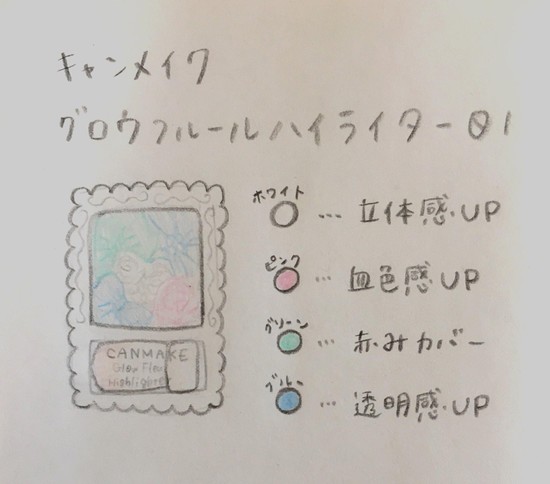 キャンメイク
グロウフルールハイライター01
ホワイト … 立体感UP
ピンク … 血色感UP
グリーン … 赤みカバー
ブルー … 透明感UP
CANMAKE
Glow Fleur
Highlighter